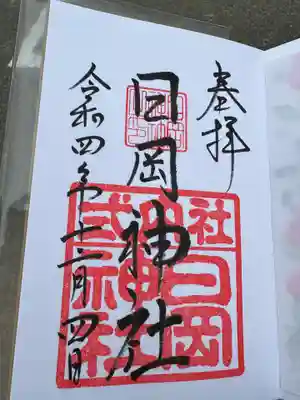 奉拝
日岡神社
令和四年十二月四日
式内社日岡神社